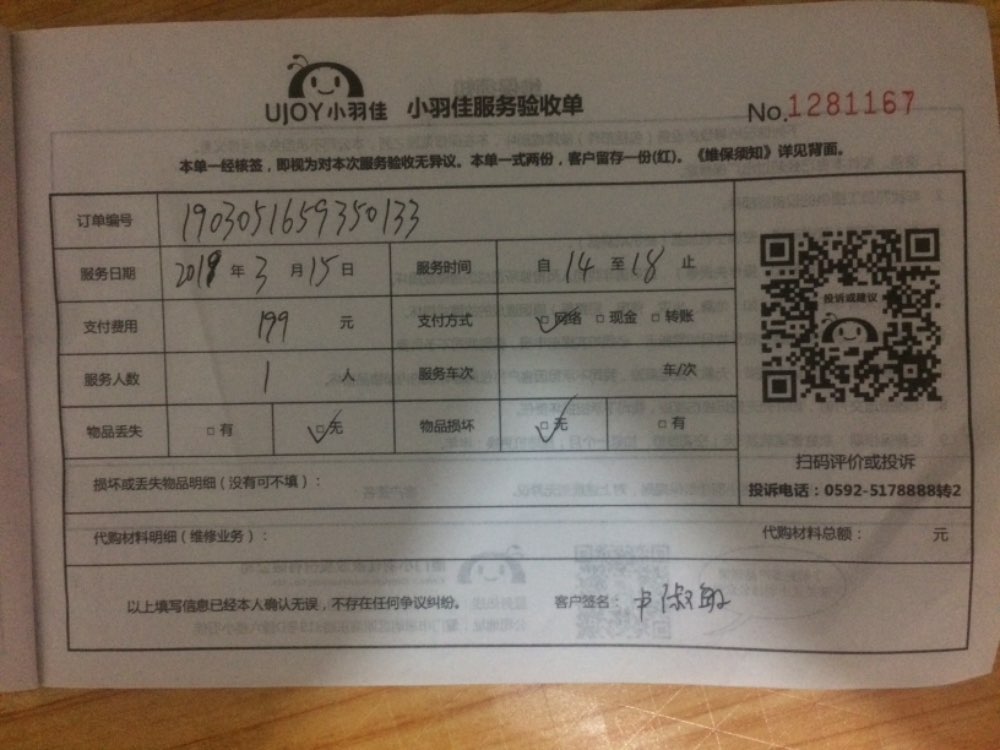 UJOY小羽佳 小羽佳服务验收单 No.1281167
本单一经核签，即视为对本次服务验收无异议。本单一式两份，客户留存一份(红)。《维保须知》详见背面。
订单编号 1903051659350133
服务日期 2019 年 3 月 15 日 服务时间 自 14 至 18 止
支付费用 199 元 支付方式 ☑网络 □现金 □转账
服务人数 1 人 服务车次 车/次
物品丢失 □有 ☑无 物品损坏 ☑无 □有
投诉或建议
扫码评价或投诉
投诉电话：0592-5178888转2
损坏或丢失物品明细（没有可不填）：
代购材料明细（维修业务）： 代购材料总额： 元
以上填写信息已经本人确认无误，不存在任何争议纠纷。 客户签名：卢淑敏